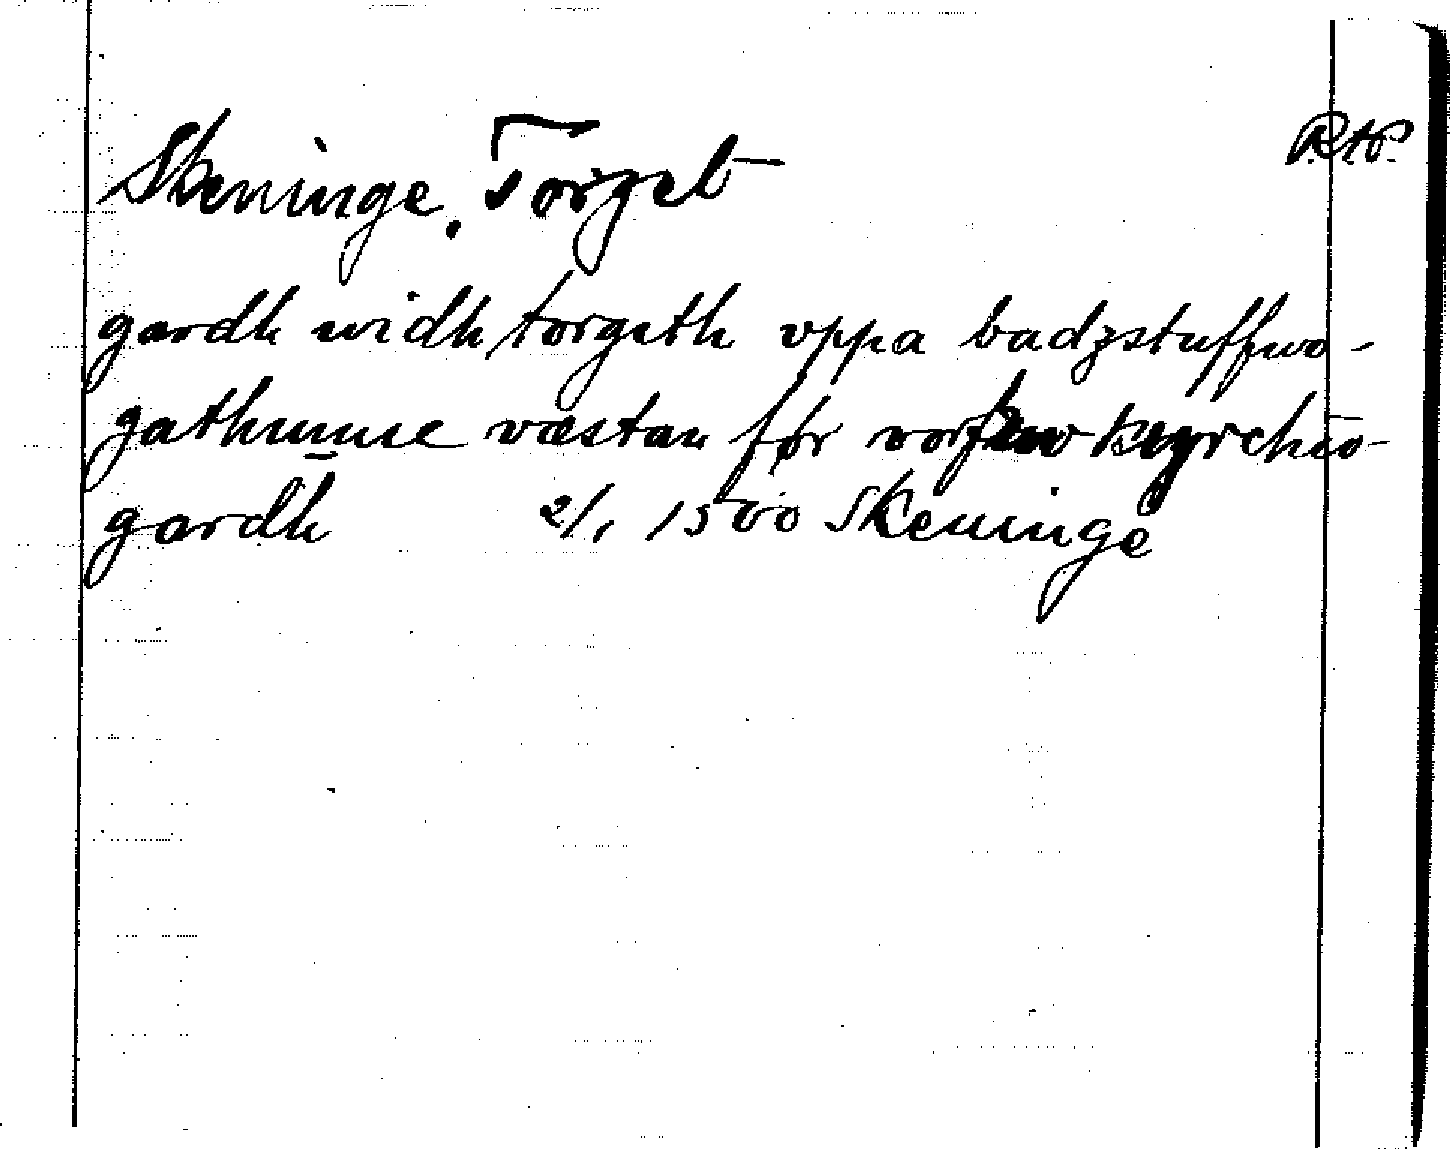 Skeninge. Torget RAP.
gardh widh torgeth vppa badzstuffwo-
gathunne væstan før vorfrw kyrchio-
gardh 2/1 1500 Skeninge